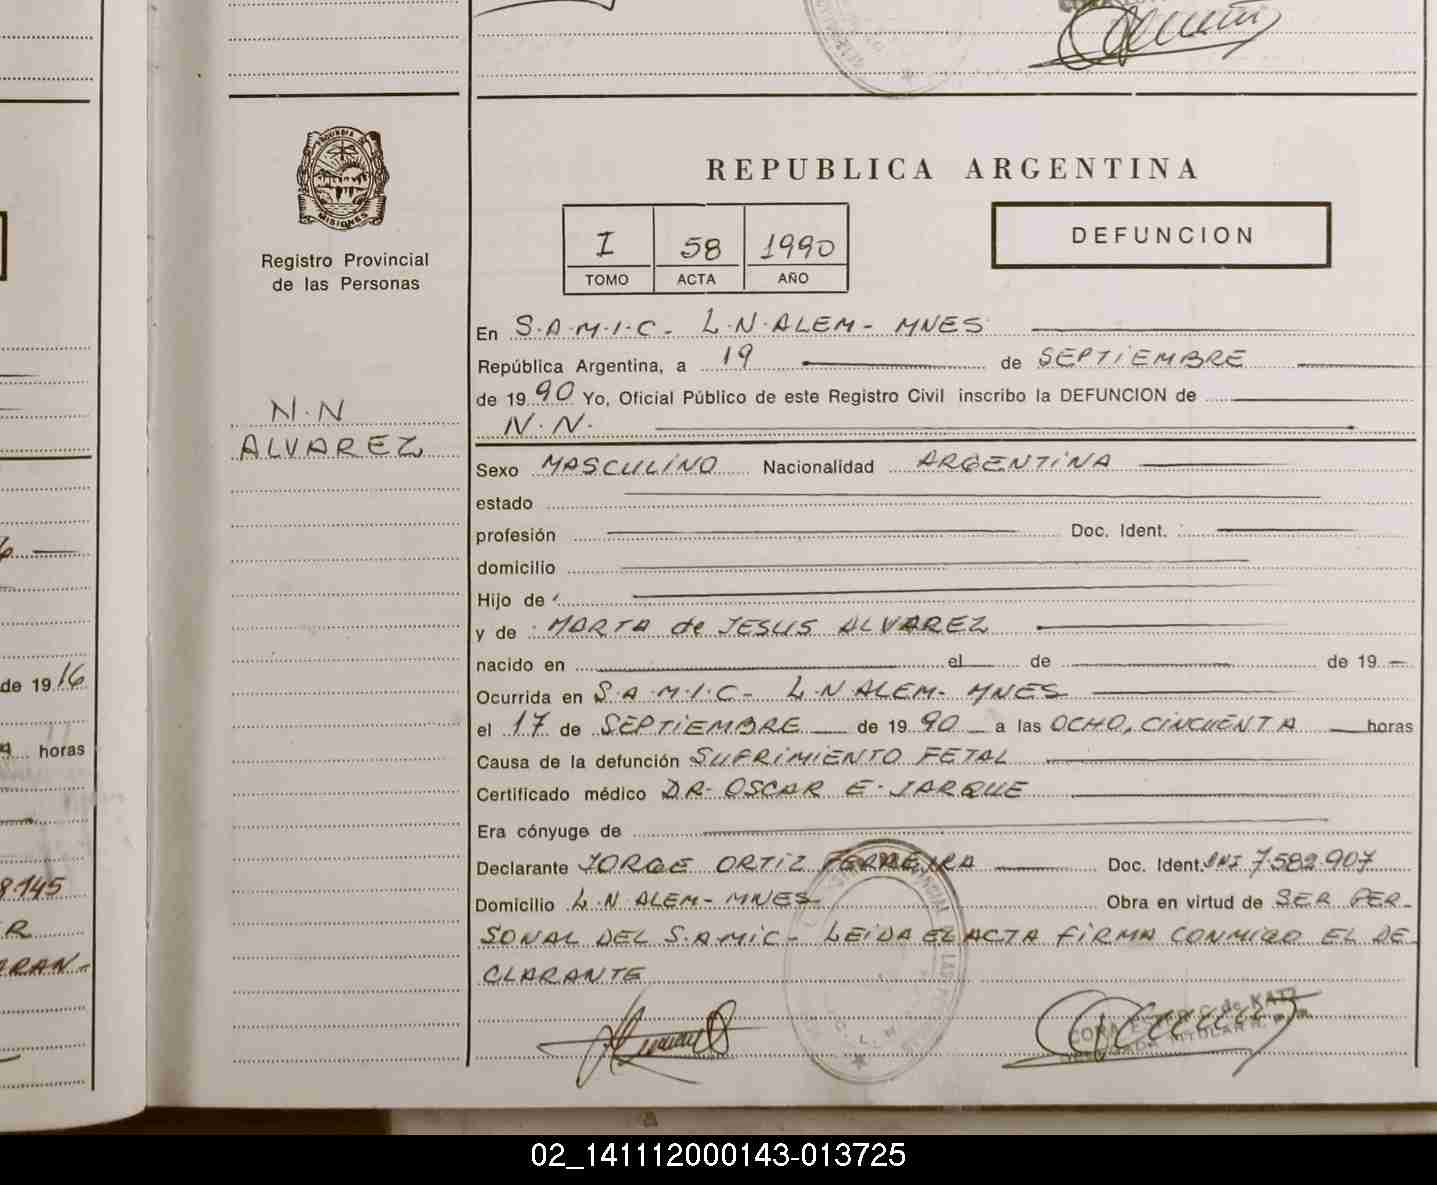 REPUBLICA ARGENTINA
I 58 1990
TOMO ACTA AÑO
DEFUNCION
PROVINCIA DE
MISIONES
Registro Provincial
de las Personas
N.N
ALVAREZ
En S.A.M.I.C- L.N.ALEM- MNES
República Argentina, a 19 de SEPTIEMBRE
de 1990 Yo, Oficial Público de este Registro Civil inscribo la DEFUNCION de
N.N.
Sexo MASCULINO Nacionalidad ARGENTINA
estado
profesión Doc. Ident.
domicilio
Hijo de
y de MARTA de JESUS ALVAREZ
nacido en el de de 19
Ocurrida en S.A.M.I.C- L.N ALEM- MNES
el 17 de SEPTIEMBRE de 1990 a las OCHO, CINCUENTA horas
Causa de la defunción SUFRIMIENTO FETAL
Certificado médico DR. OSCAR E. JARQUE
Era cónyuge de
Declarante JORGE ORTIZ FERREYRA Doc. Ident. DNI 7.582.907
Domicilio L.N ALEM- MNES Obra en virtud de SER PER-
SONAL DEL S.A.MIC- LEIDA EL ACTA FIRMA CONMIGO EL DE
CLARANTE
de KATZ
TITULAR
de 1916
horas
8.145
R
ARAN-
02_141112000143-013725